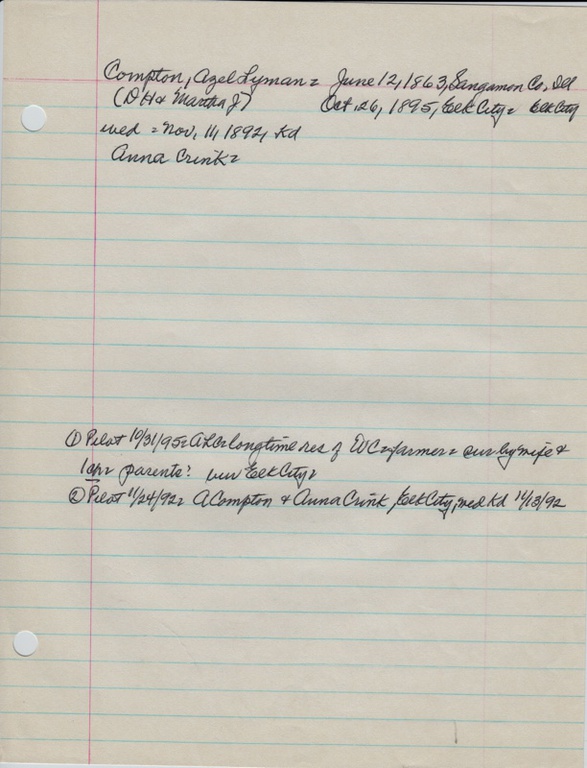 Compton, Azel Lyman = June 12, 1863, Sangamon Co, Ill
(D H & Martha J) Oct 26, 1895, Elk City = Elk City
wed = Nov. 11, 1892, Kd
Anna Crink =
① Pilot 10/31/95 = ALC = longtime res of = farmer = sur by wife &
1 parents? Elk City =
② Pilot 11/24/92 = A Compton & Anna Crink, Elk City, wed Kd 11/13/92